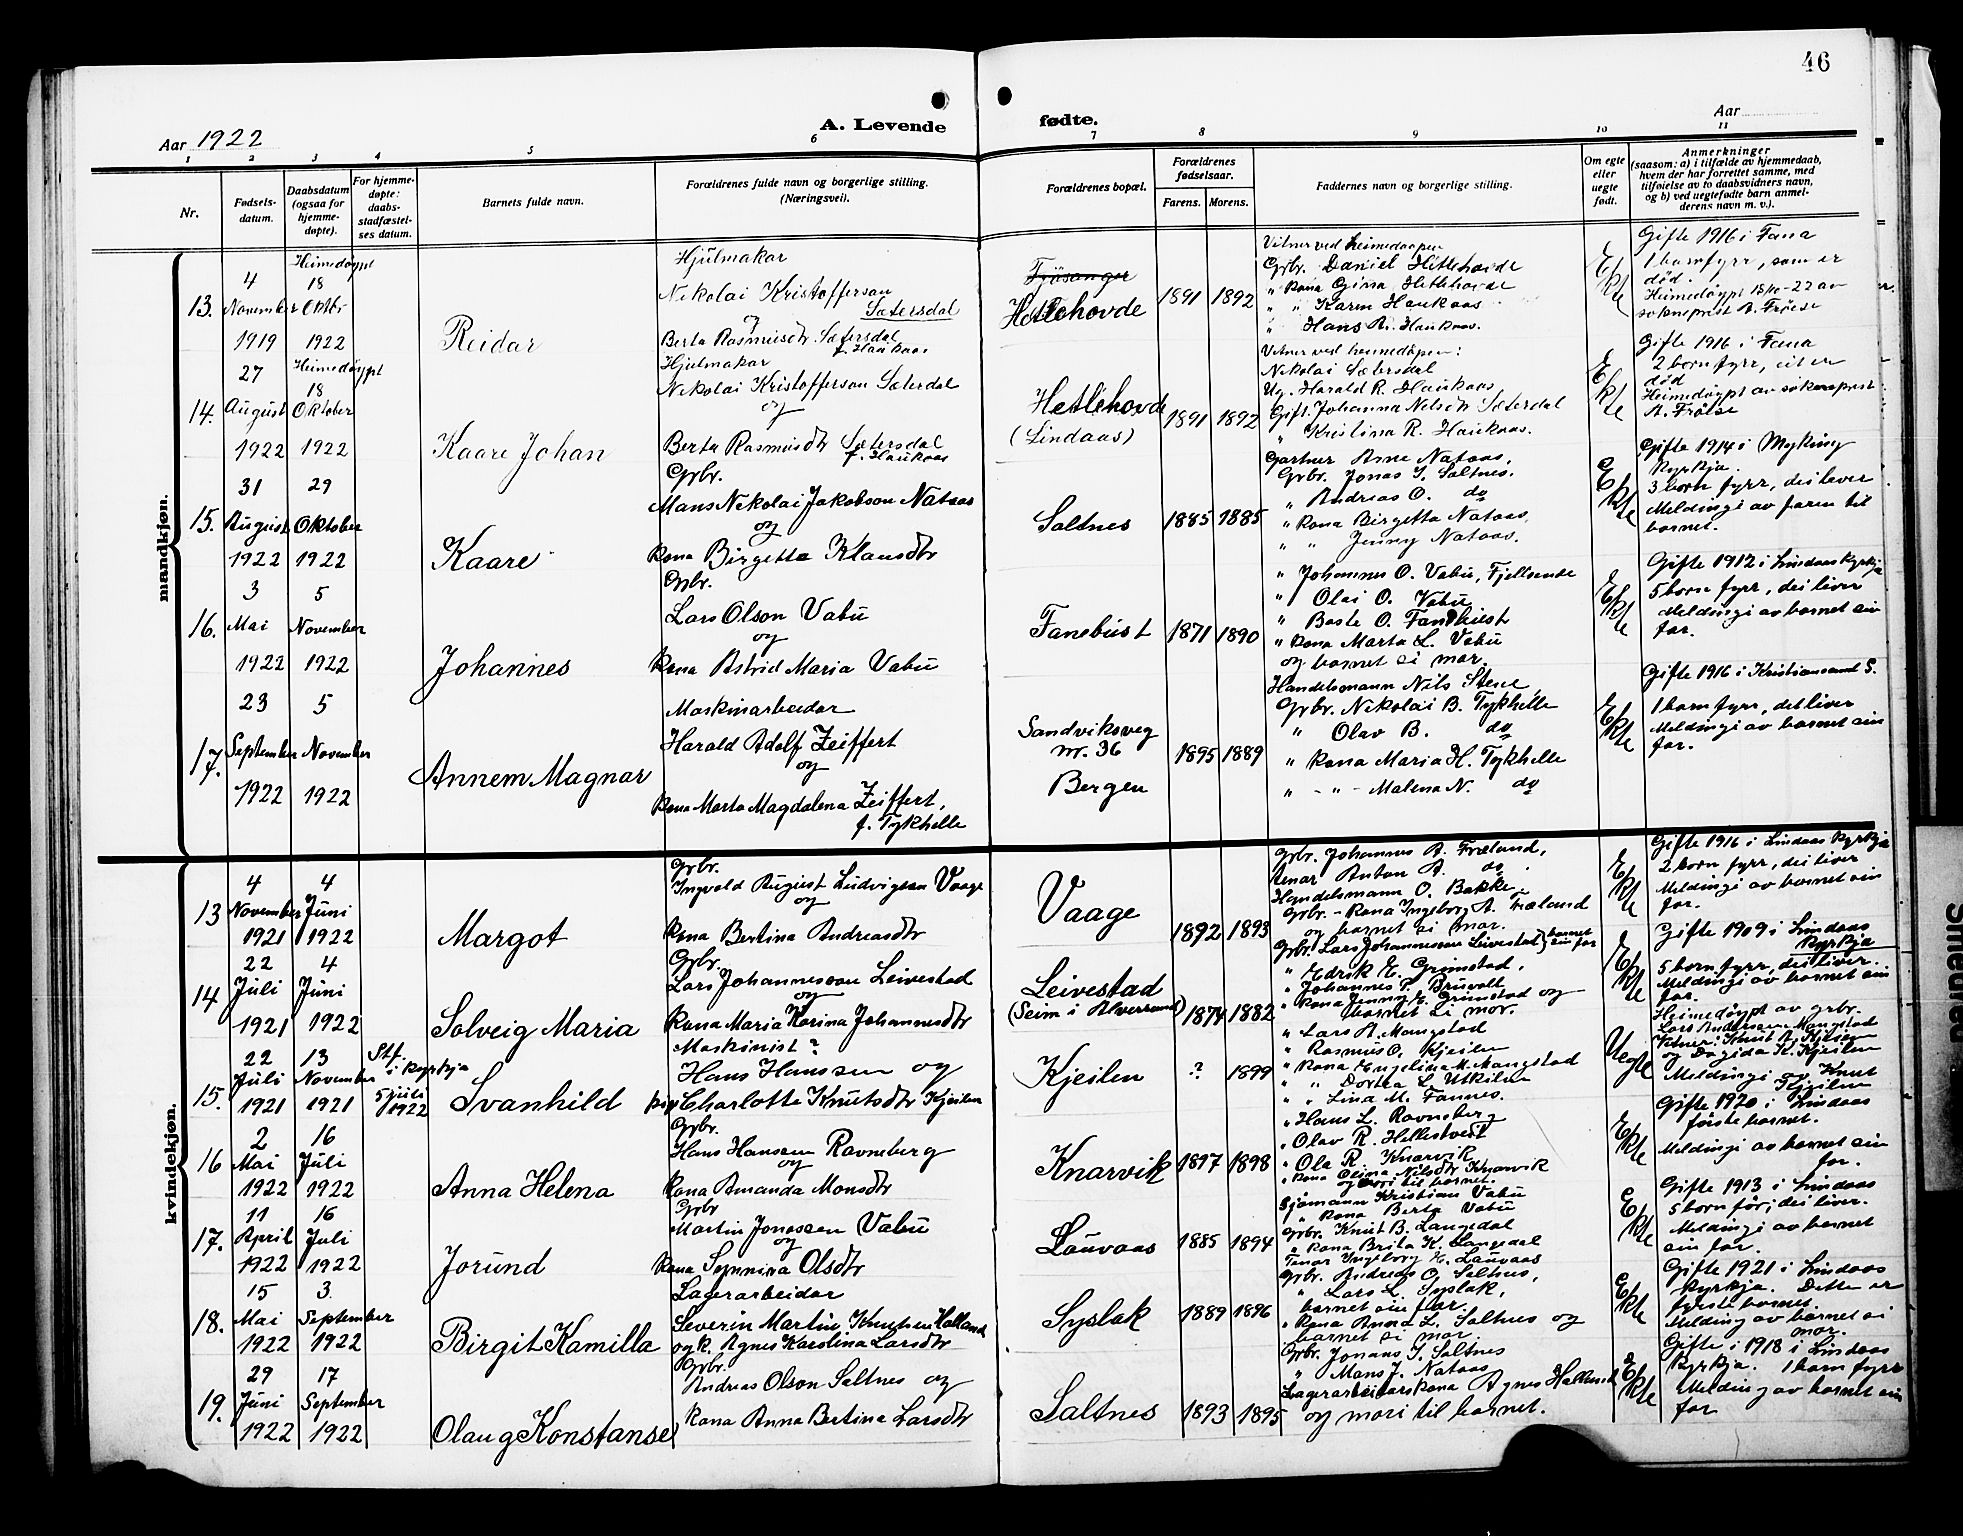 46
Aar 1922
A. Levende fødte.
Aar
1 2 3 4 5 6 7 8 9 10 11
Nr.
Fødsels-datum.
Daabsdatum (ogsaa for hjemme-døpte).
For hjemme-døpte: daabs-stadfæstel-ses datum.
Barnets fulde navn.
Forældrenes fulde navn og borgerlige stilling. (Næringsvei).
Forældrenes bopæl.
Forældrenes fødselsaar.
Farens. Morens.
Faddernes navn og borgerlige stilling.
Om egte eller uegte født.
Anmerkninger
(saasom: a) i tilfælde av hjemmedaab,
hvem der har forrettet samme, med
tilføielse av to daabsvidners navn,
og b) ved uegtefødte barn anmel-
derens navn m. v.).
mandkjøn.
13.
4 November 1919
Heimedøypt 18 Oktbr 1922
Reidar
Hjulmakar
Nikolai Kristofferson Sætersdal
og
Berta Rasmusdtr Sætersdal
f. Haukaas
Fjøsanger
Hetlehovde
1891 1892
Vitner ved heimedaapen
Grbr. Daniel Hetlehovde
" Kona Gina Hetlehovde
" " Karen Haukaas
" Hans R. Haukaas.
Ekte
Gifte 1916 i Fana
1 barn fyrr, som er
død.
Heimedøypt 18/10-22 av
sokneprest A. Fröise
14.
27 August 1922
Heimedøypt 18 Oktober 1922
Kaare Johan
Hjulmakar
Nikolai Kristofferson Sæterdal
og
Berta Rasmusdtr Sætersdal
f. Haukaas
Hetlehovde
(Lindaas)
1891 1892
Vitner ved heimedøpen:
Nikolai Sætersdal
Ug. Harald R. Haukaas
Gift. Johanna Nelsdtr Sæterdal
" Kristina R. Haukaas.
Ekte
Gifte 1916 i Fana
2 born fyrr, eit er
død
Heimedøypt av sokneprest
A. Fröise
15.
31 August 1922
29 Oktober 1922
Kaare
Grbr.
Mans Nikolai Jakobson Nataas
og
kona Birgetta Klausdtr
Saltnes
1885 1885
Gartner Arne Nataas,
Grbr. Jonas I. Saltnes.
" Andreas O. do
" Kona Birgetta Nataas,
" " Jenny Nataas.
Ekte
Gifte 1914 i Myking
Kyrkja.
3 born fyrr, dei lever
Meldingi av faren til
barnet.
16.
3 Mai 1922
5 November 1922
Johannes
Grbr.
Lars Olson Vabu
og
Kona Astrid Maria Vabu
Fanebust
1871 1890
" Johannes O. Vabu, Fjellsende
" Olai O. Vabu
" Baste O. Fanebust
" Kona Marta L. Vabu
og barnet si mor.
Ekte
Gifte 1912 i Lindaas Kyrkja
5 born fyrr, dei liver
Meldingi av barnet ein
far.
17.
23 September 1922
5 November 1922
Annem Magnar
Maskinarbeidar
Harald Adolf Zeiffert
og
Kona Marta Magdalena Zeiffert,
f. Tykhelle
Sandviksveg
nr. 36
Bergen
1895 1889
Handelsmann Nils Stene,
Grbr. Nikolai B. Tykhelle
" Olav B. do
" Kona Maria H. Tykhelle
" - " - Malena N. do
Ekte
Gifte 1916 i Kristiansand S.
1 barn fyrr, det liver
Meldingi av barnet ein
far.
kvindekjøn.
13
4 November 1921
4 Juni 1922
Margot
Grbr.
Ingvald August Ludvigsen Vaage
og
Kona Bertina Andreasdtr
Vaage
1892 1893
Grbr. Johannes A. Fræland,
Tenar Anton A. do.
Handelsmann O. Bakke.
Grbr. - Kona Ingeborg A. Fræland
og barnet si mor.
Ekte
Gifte 1916 i Lindaas Kyrkja
2 born fyrr, dei liver
Meldingi av barnet ein
far.
14
22 Juli 1921
4 Juni 1922
Solveig Maria
Grbr.
Lars Johannesson Leivestad
og
Kona Maria Karina Johannesdtr
Leivestad
(Seim i Alversund)
1874 1882
Grbr. Lars Johannesson Leivestad, barnet ein far
" Edrik E. Grimstad,
" Johannes P. Brisvolt
" Kona Jenny E. Grimstad og
barnet si mor.
Ekte
Gifte 1909 i Lindaas
Kyrkja
5 born fyrr, dei liver.
Meldingi av barnet ein
far.
15.
22 Juli 1921
13 November 1921
Stf. i kyrkja 5 juli 1922
Svanhild
Maskinist ?
Hans Hanssen og
pig. Charlotte Knutsdtr Kjeilen
Kjeilen
? 1899
" Lars A. Mangstad
" Rasmus O. Kjeilen
" Kona Engelina M. Mangstad
" " Dortea L. Utkilen
" " Lina M. Fannes.
Uegte
Heimedøypt av grbr.
Lars Anderssen Mangstad
Vitner: Knut A. Kjeilen
og Dagida K. Kjeilen
Meldingi av Knut
Kjeilen
16
2 Mai 1922
16 Juli 1922
Anna Helena
Grbr.
Hans Hansen Ravneberg
og
Kona Amanda Monsdtr
Knarvik
1897 1898
" Hans L. Ravneberg
" Olav R. Hellestvedt
" Ola R. Knarvik
" Kona Seima Nilsdtr Knarvik
og mori til barnet.
Ekte
Gifte 1920 i Lindaas
förste barnet.
Meldingi av barnet ein
far.
17.
11 April 1922
16 Juli 1922
Jorund
Grbr
Martin Jonassen Vabu
og
Kona Synnina Olsdtr
Lauvaas
1885 1894
Sjömann Kristian Vabu
" Kona Berta Vabu
Grbr. Knut B. Langedal
" Kona Brita K. Langedal
Tenar Ingeborg H. Lauvaas
Ekte
Gifte 1913 i Lindaas
5 born för, dei liver.
Meldingi av barnet
ein far.
18.
15 Mai 1922
3 September 1922
Birgit Kamilla
Lagerarbeidar
Severin Martin Knutsen Halland
og k. Agnes Karolina Larsdtr
Syslak
1889 1896
Grbr. Andreas O. Saltnes,
" Lars L. Syslak,
barnet ein far.
" Kona Anna L. Saltnes og
barnet si mor
Ekte
Gifte 1921 i Lindaas
Kyrkja. Dette er
fyrste barnet.
Melding av barnet si
mor.
19.
29 Juni 1922
17 September 1922
Olaug Konstanse
Grbr.
Andreas Olson Saltnes og
Kona Anna Bertina Larsdtr
Saltnes
1893 1895
Grbr. Jonans I. Saltnes
" Mans J. Nataas
Lagerarbeidarkona Agnes Halland
og mori til barnet.
Ekte
Gifte i 1918 i Lindaas
Kyrkja. 1 barn fyrr
Melding av barnet ein
far